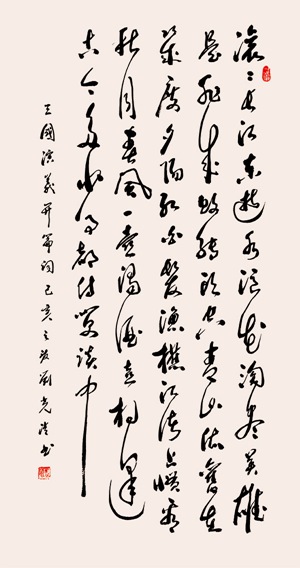 滚滚长江东逝水浪花淘尽英雄
是非成败转头空青山依旧在
幾度夕阳红白髮渔樵江渚上惯看
秋月春風一壶濁酒喜相逢
古今多少事都付笑谈中
三國演義開篇词己亥之秋劉光書